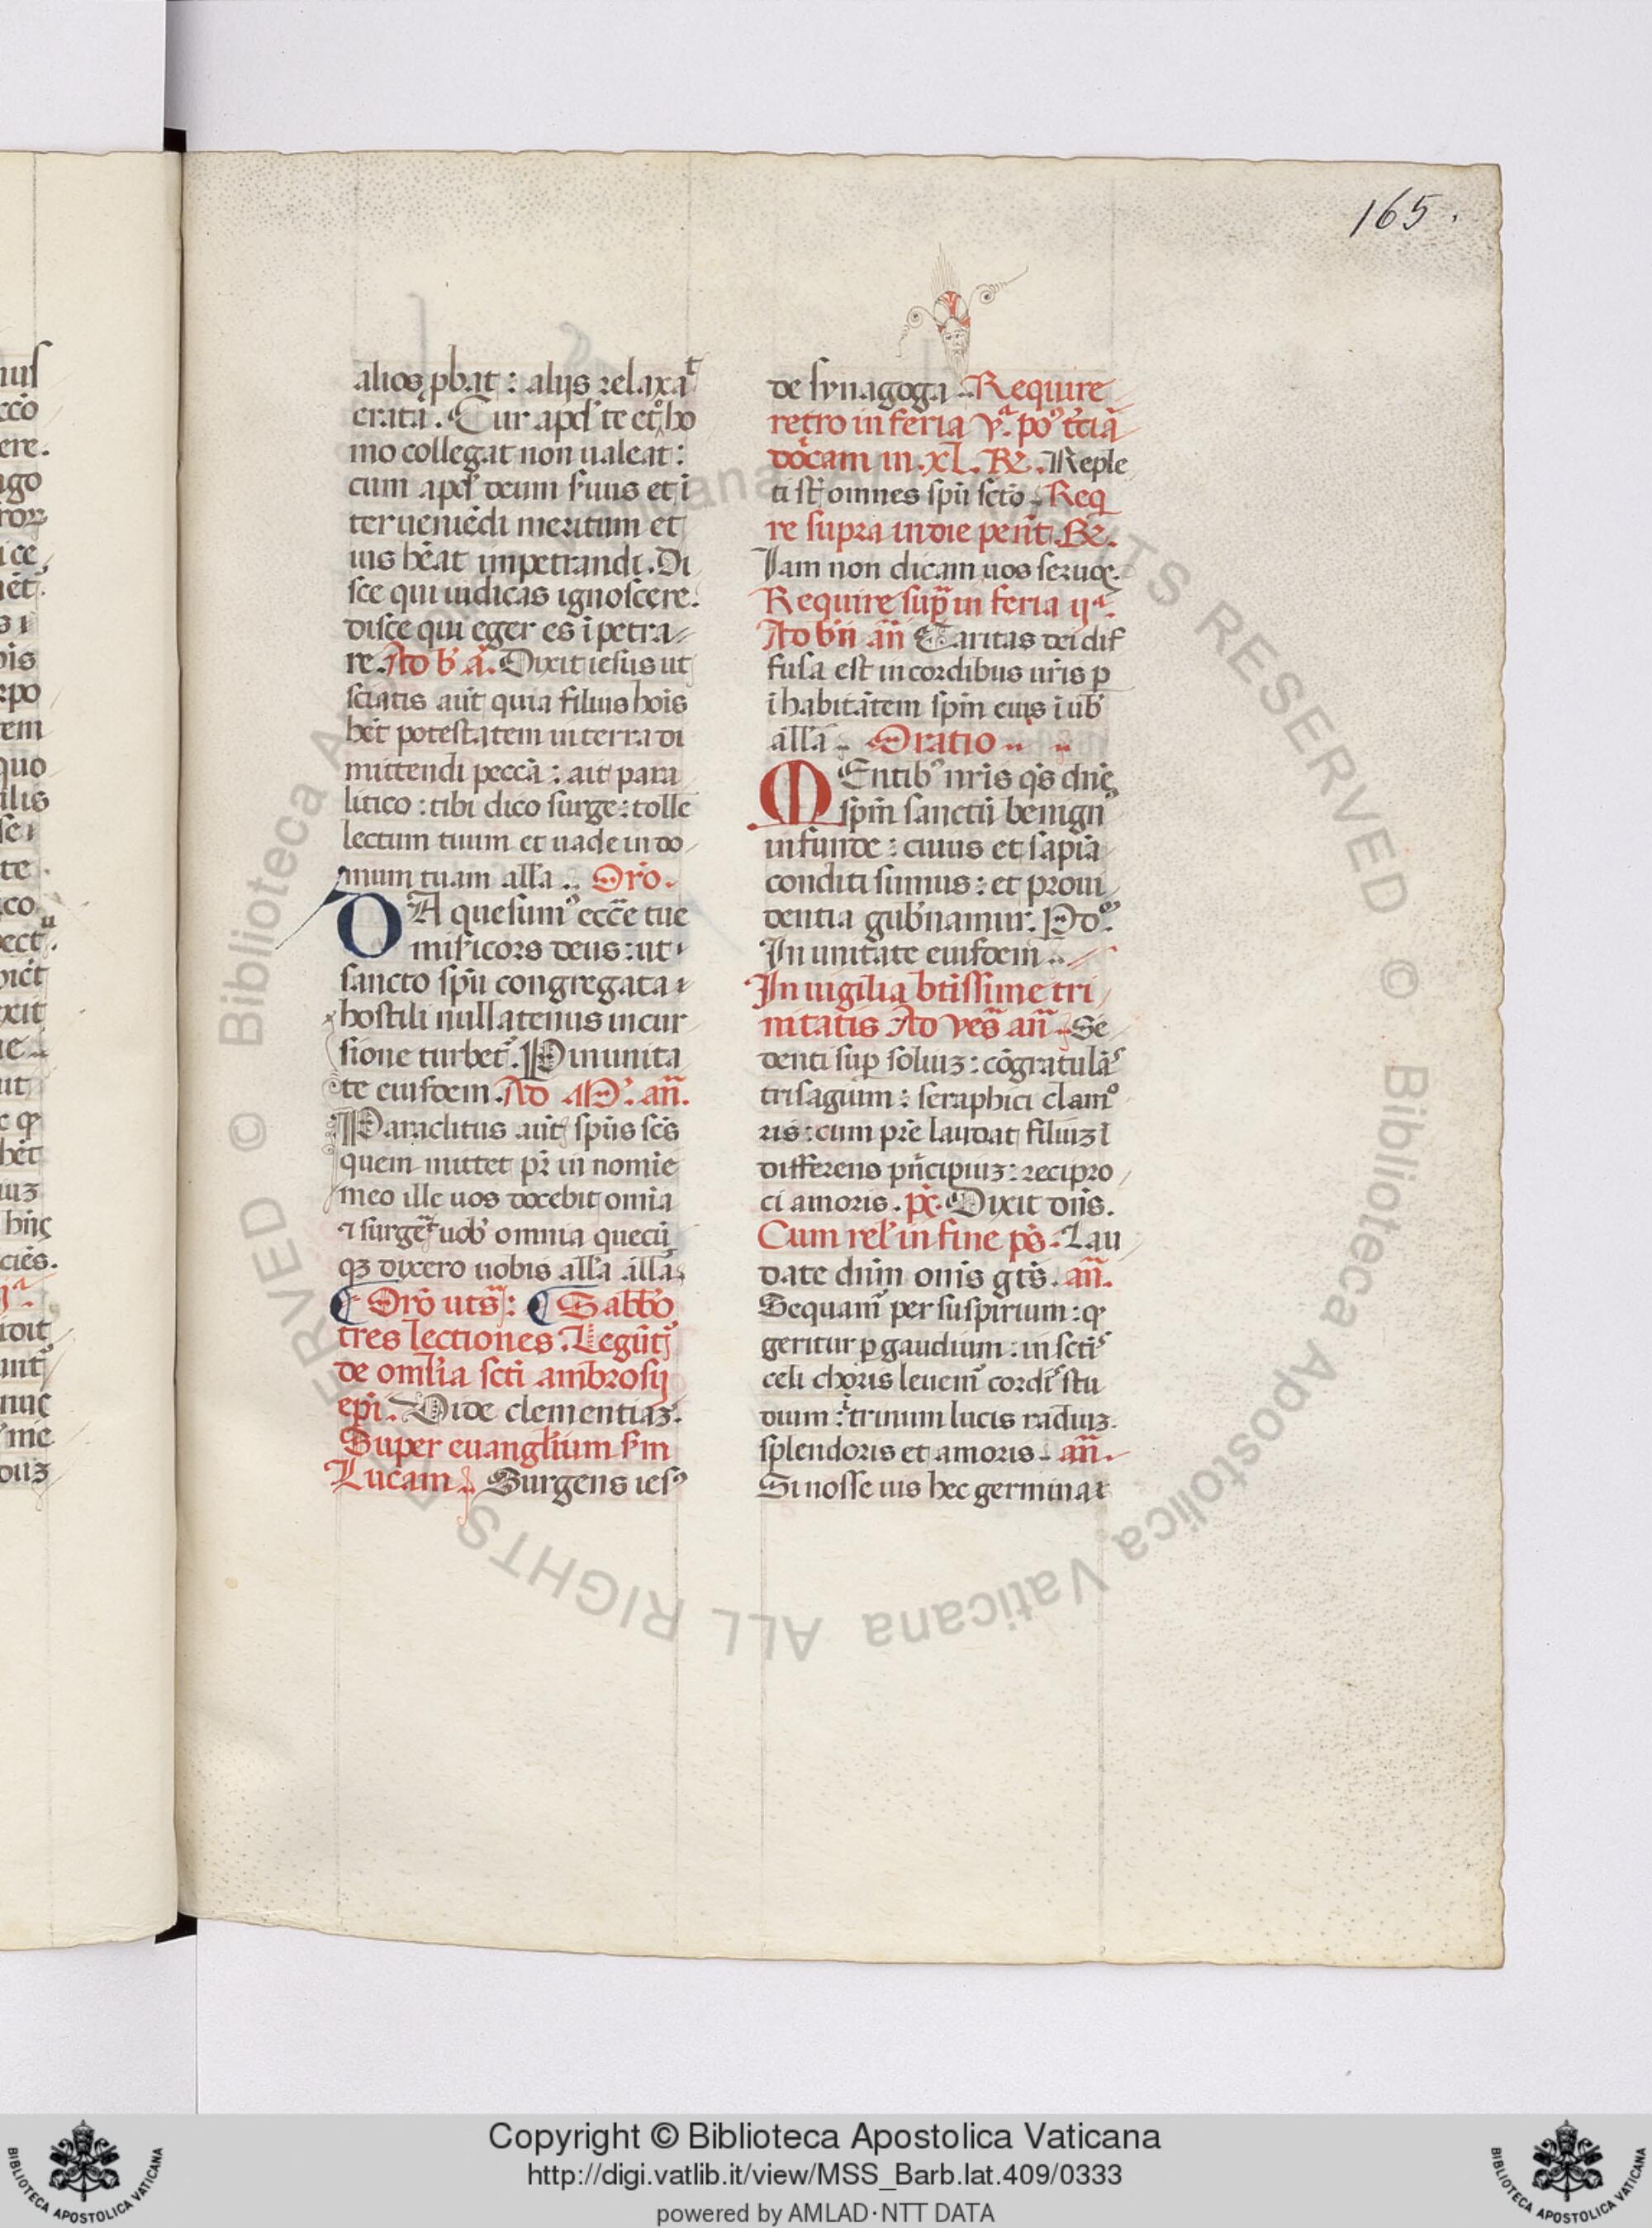 165.
alios ꝓbat : alijs relaxat
errata. Cur apd' te et ho
mo collega t non ualeat :
cum apd' deum s'uus et ĩ
terueniẽdi meritum et
ius hẽat impetrandi. Di
sce qui iudicas ignoscere.
disce qui eger es ĩpetra
re. Ad b' a. Dixit iesus ut
sciatis aut̃ quia filius hoĩs
hẽt potestatem in terra di
mittendi peccã : ait para
litico : tibi dico surge : tolle
lectum tuum et uade in do
mum tuam all'a .. Orõ.
DA quesum⁹ ecc̃e tue
mis'icors deus : ut
sancto spũ congregata
hostili nullatenus incur
sione turbet'. P in unita
te eiusdem. Ad M'. añ.
Paraclitus aut̃ spũs sc̃s
quem mittet pr̃ in nomĩe
meo ille uos docebit omĩa
⁊ surget' uob' omnia quecũ
qꝫ dixero uobis all'a all'a
Orõ ut sª : Sabbõ
tres lectiones. Legũt'
de omlia scti ambrosij
epi. Vide clementiaꝫ.
Super euanglium s'm
Lucam. Surgens ies⁹
de synagoga .. Require
retro in feria v.ª po' t'ciã
dõcam in .xl. R. Reple
ti st̃ omnes spũ sctõ. Req
re supra in die pent̃. R.
Iam non dicam uos seruoꝝ.
Require supª in feria ijª.
Ad bñ añ Caritas dei dif
fusa est in cordibus nr̃is ꝑ
ĩhabitãtem spm̃ eius ĩ uob'
all'a .. Oratio ..
MEntib⁹ nr̃is qs̃ dñe
spm̃ sanctũ benign⁹
infunde : cuius et sapĩa
conditi sumus : et proui
dentia gub'namur. P do.
In unitate eiusdem ..
In uigilia btĩssime tri
nitatis Ad ves̃ añ .. Se
denti sup soliuꝫ : cõgratulãs
trisagium : seraphici clamo
ris : cum pr̃e laudat filiuꝫ ĩ
differens pñcipiuꝫ : recipro
ci amoris. p̃s. Dixit dñs.
Cum rel' in fine ps̃. Lau
date dñm oñis gt̃s. añ.
Sequam' per suspirium : qđ
geritur ꝑ gaudium : in sctĩs
celi choris leuem' cordis stu
dium : ĩ trinum lucis radiuꝫ
splendoris et amoris. añ.
Si nosse uis hec germina
© Biblioteca Apostolica Vaticana ALL RIGHTS RESERVED
© Biblioteca Apostolica Vaticana ALL RIGHTS RESERVED
Copyright © Biblioteca Apostolica Vaticana
http://digi.vatlib.it/view/MSS_Barb.lat.409/0333
powered by AMLAD·NTT DATA
BIBLIOTECA APOSTOLICA VATICANA
BIBLIOTECA APOSTOLICA VATICANA